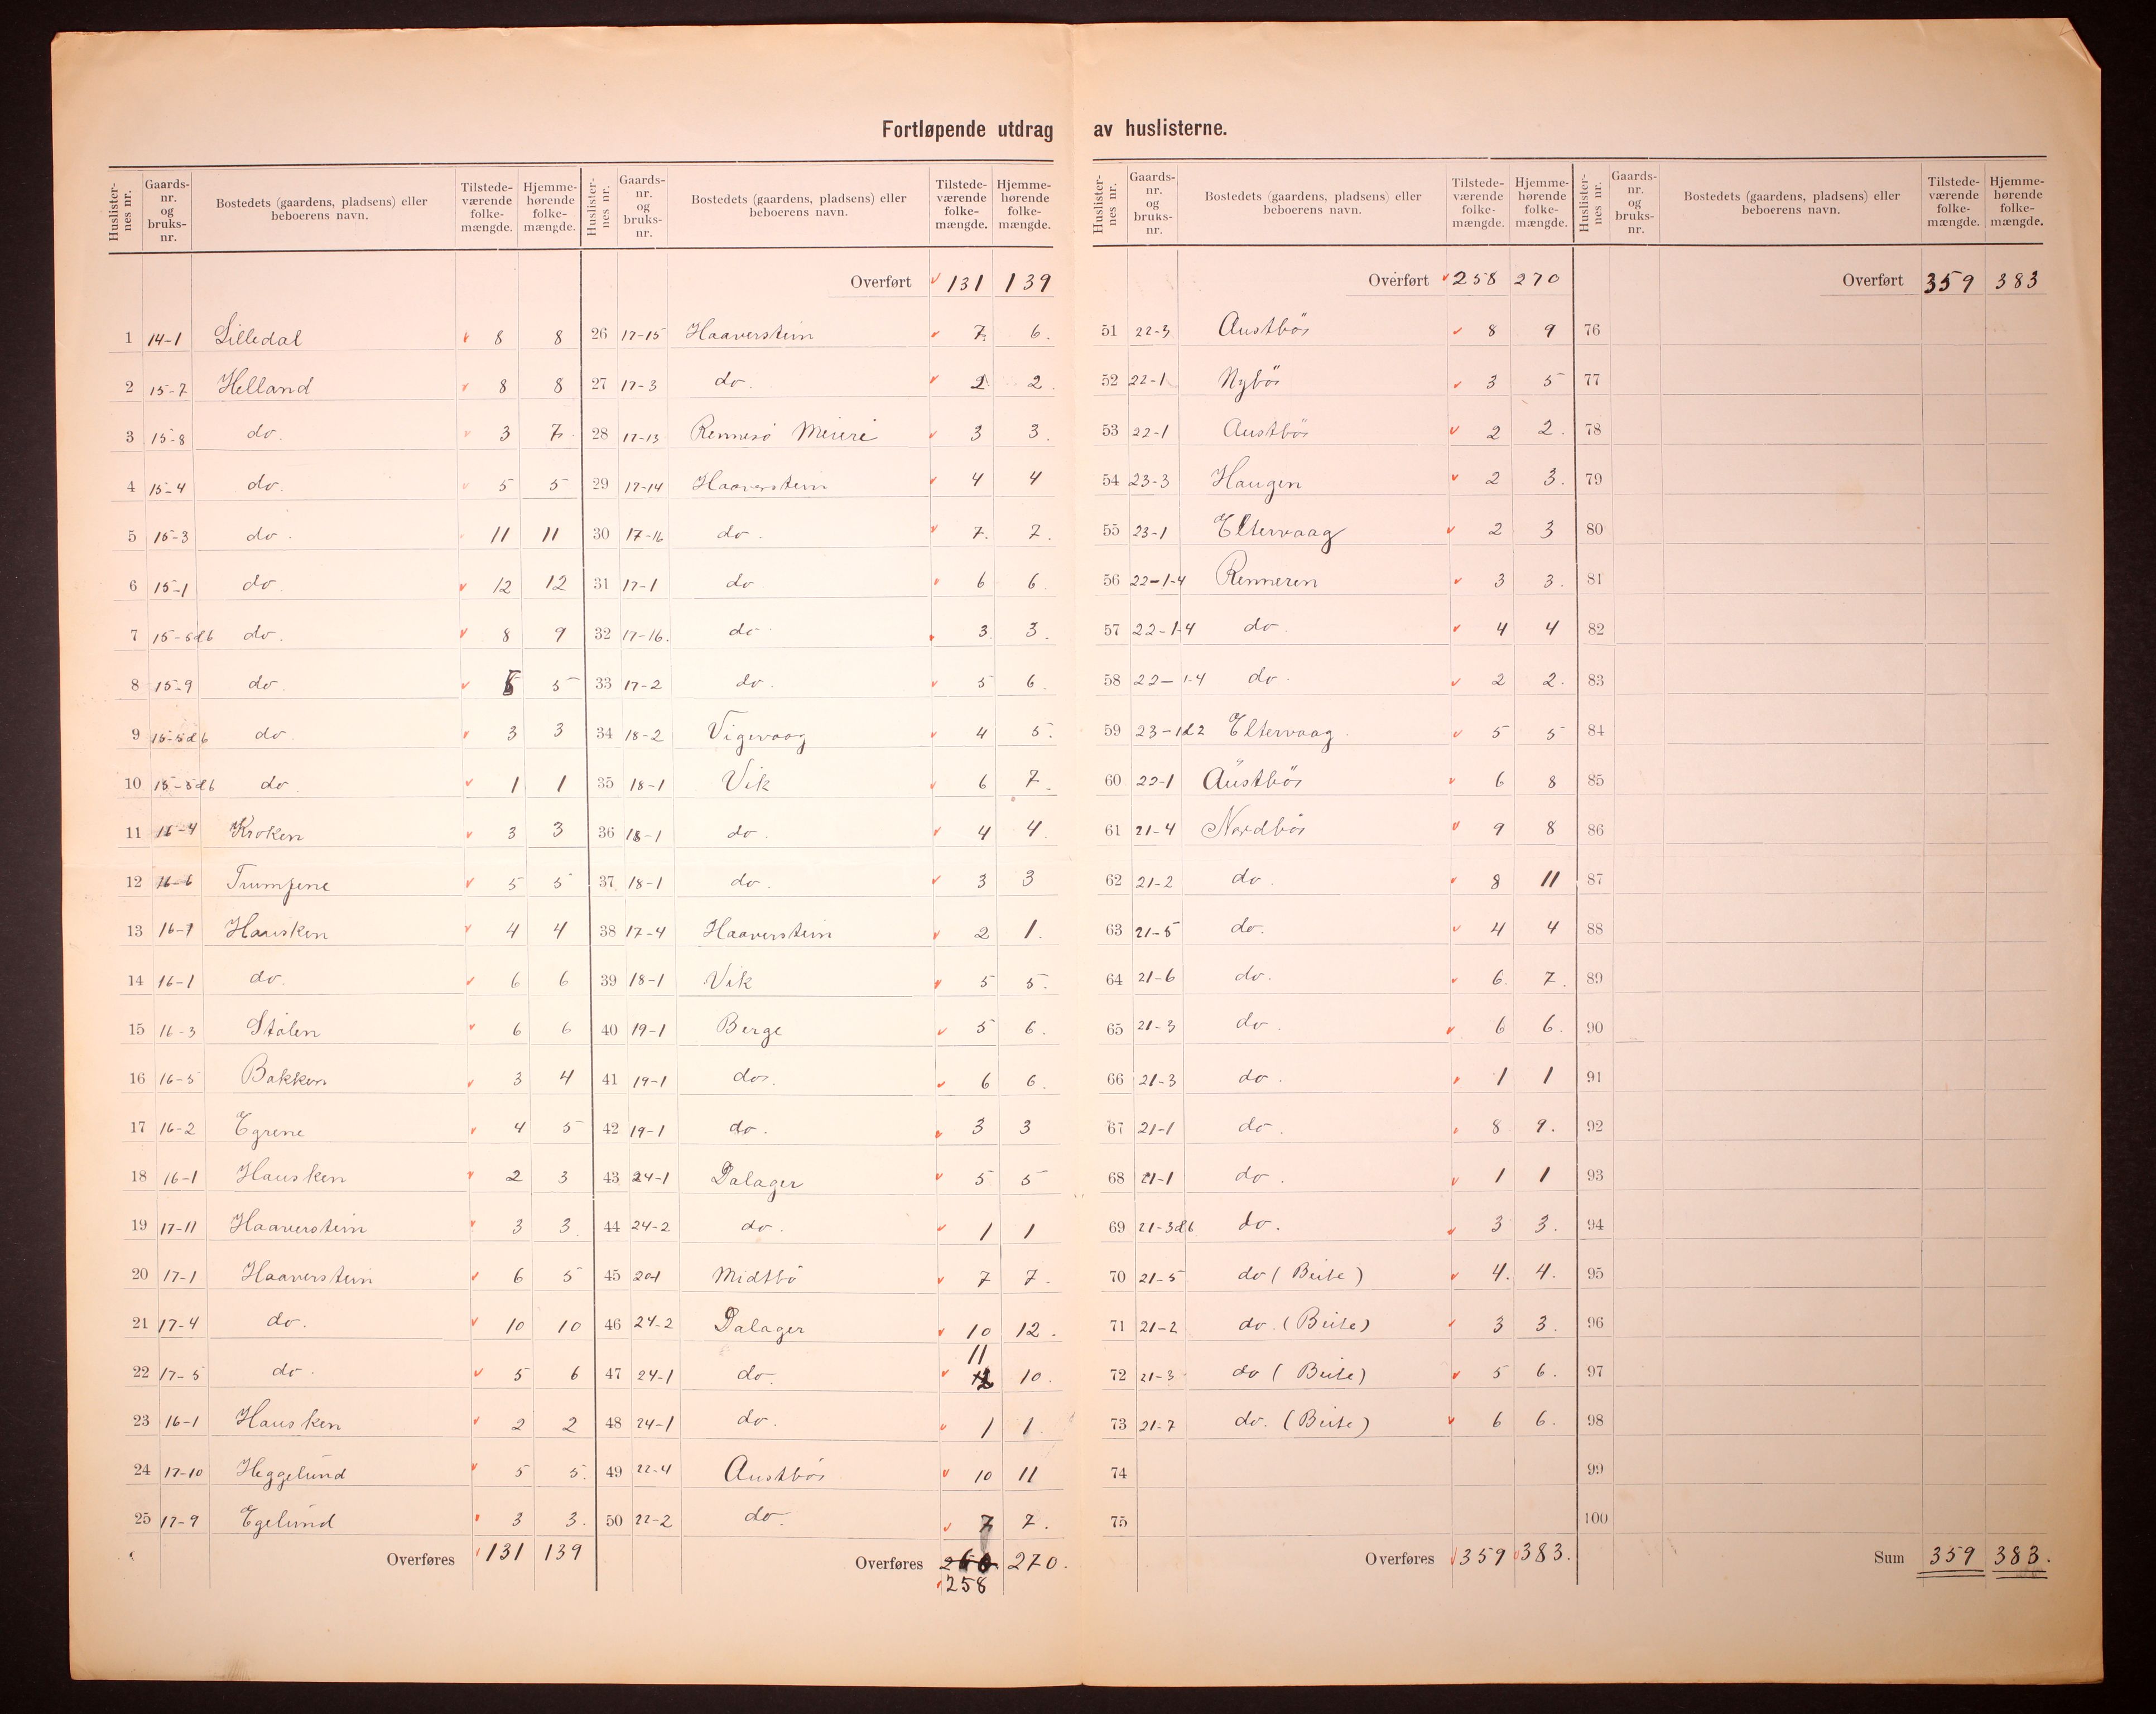 Fortløpende utdrag av huslisterne.
Huslisternes nr. Gaards-nr. og bruks-nr. Bostedets (gaardens, pladsens) eller beboerens navn. Tilstede-værende folke-mængde. Hjemme-hørende folke-mængde.
1 14-1 Lilledal 8 8
2 15-7 Helland 8 8
3 15-8 do. 3 7
4 15-4 do. 5 5
5 15-3 do. 11 11
6 15-1 do. 12 12
7 15-5&6 do. 8 9
8 15-9 do. 5 5
9 15-5&6 do. 3 3
10 15-5&6 do 1 1
11 16-4 Kroken 3 3
12 16-6 5 5
13 16-1 Hausken 4 4
14 16-1 do. 6 6
15 16-3 Stølen 6 6
16 16-5 Bakken 3 4
17 16-2 Egrene 4 5
18 16-1 Hausken 2 3
19 17-11 Haaverstein 3 3.
20 17-1 Haaverstein 6 5
21 17-4 do. 10 10
22 17-5 do. 5 6
23 16-1 Hausken 2 2
24 17-10 Heggelund 5 5.
25 17-9 Egelund 3 3.
Overføres 131 139
Huslisternes nr. Gaards-nr. og bruks-nr. Bostedets (gaardens, pladsens) eller beboerens navn. Tilstede-værende folke-mængde. Hjemme-hørende folke-mængde.
Overført 131 139
26 17-15 Haaverstein 7. 6.
27 17-3 do. 2 2.
28 17-13 Rennesø Meieri 3 3.
29 17-14 Haaverstein 4 4
30 17-16 do. 7. 7.
31 17-1 do 6 6.
32 17-16. do 3 3.
33 17-2 do. 5 6.
34 18-2 Vigevaag 4 5.
35 18-1 Vik 6 7.
36 18-1 do. 4 4.
37 18-1 do. 3 3
38 17-4 Haaverstein 2 1.
39 18-1 Vik 5 5.
40 19-1 Berge 5 6.
41 19-1 do. 6 6.
42 19-1 do. 3 3
43 24-1 Dalager 5 5
44 24-2 do. 1 1
45 20-1 Midtbö 7 7.
46 24-2 Dalager 10 12.
11
47 24-1 do. 12 10.
48 24-1 do. 1 1
49 22-4 Austbös 10 11
50 22-2 do. 7 7.
Overføres 260 270.
258
Huslisternes nr. Gaards-nr. og bruks-nr. Bostedets (gaardens, pladsens) eller beboerens navn. Tilstede-værende folke-mængde. Hjemme-hørende folke-mængde.
Overført 258 270
51 22-3 Austbös 8 9
52 22-1 Nybös 3 5
53 22-1 Austbös 2 2.
54 23-3 Haugen 2 3.
55 23-1 Eltervaag 2 3
56 22-1-4 Renneren 3 3.
57 22-1-4 do. 4 4
58 22-1-4 do. 2 2.
59 23-1&2 Eltervaag. 5 5
60 22-1 Austbös 6 8
61 21-4 Nordbös 9 8
62 21-2 do. 8 11
63 21-5 do. 4 4
64 21-6 do. 6. 7.
65 21-3 do. 6 6.
66 21-3 do. 1 1
67 21-1 do. 8 9.
68 21-1 do. 1 1
69 21-3&6 do. 3 3.
70 21-5 do (Beite) 4. 4.
71 21-2 do. (Beite) 3 3.
72 21-3 do (Beite) 5 6.
73 21-7 do. (Beite) 6 6.
74
75
Overføres 359 383.
Huslisternes nr. Gaards-nr. og bruks-nr. Bostedets (gaardens, pladsens) eller beboerens navn. Tilstede-værende folke-mængde. Hjemme-hørende folke-mængde.
Overført 359 383
76
77
78
79
80
81
82
83
84
85
86
87
88
89
90
91
92
93
94
95
96
97
98
99
100
Sum 359 383.